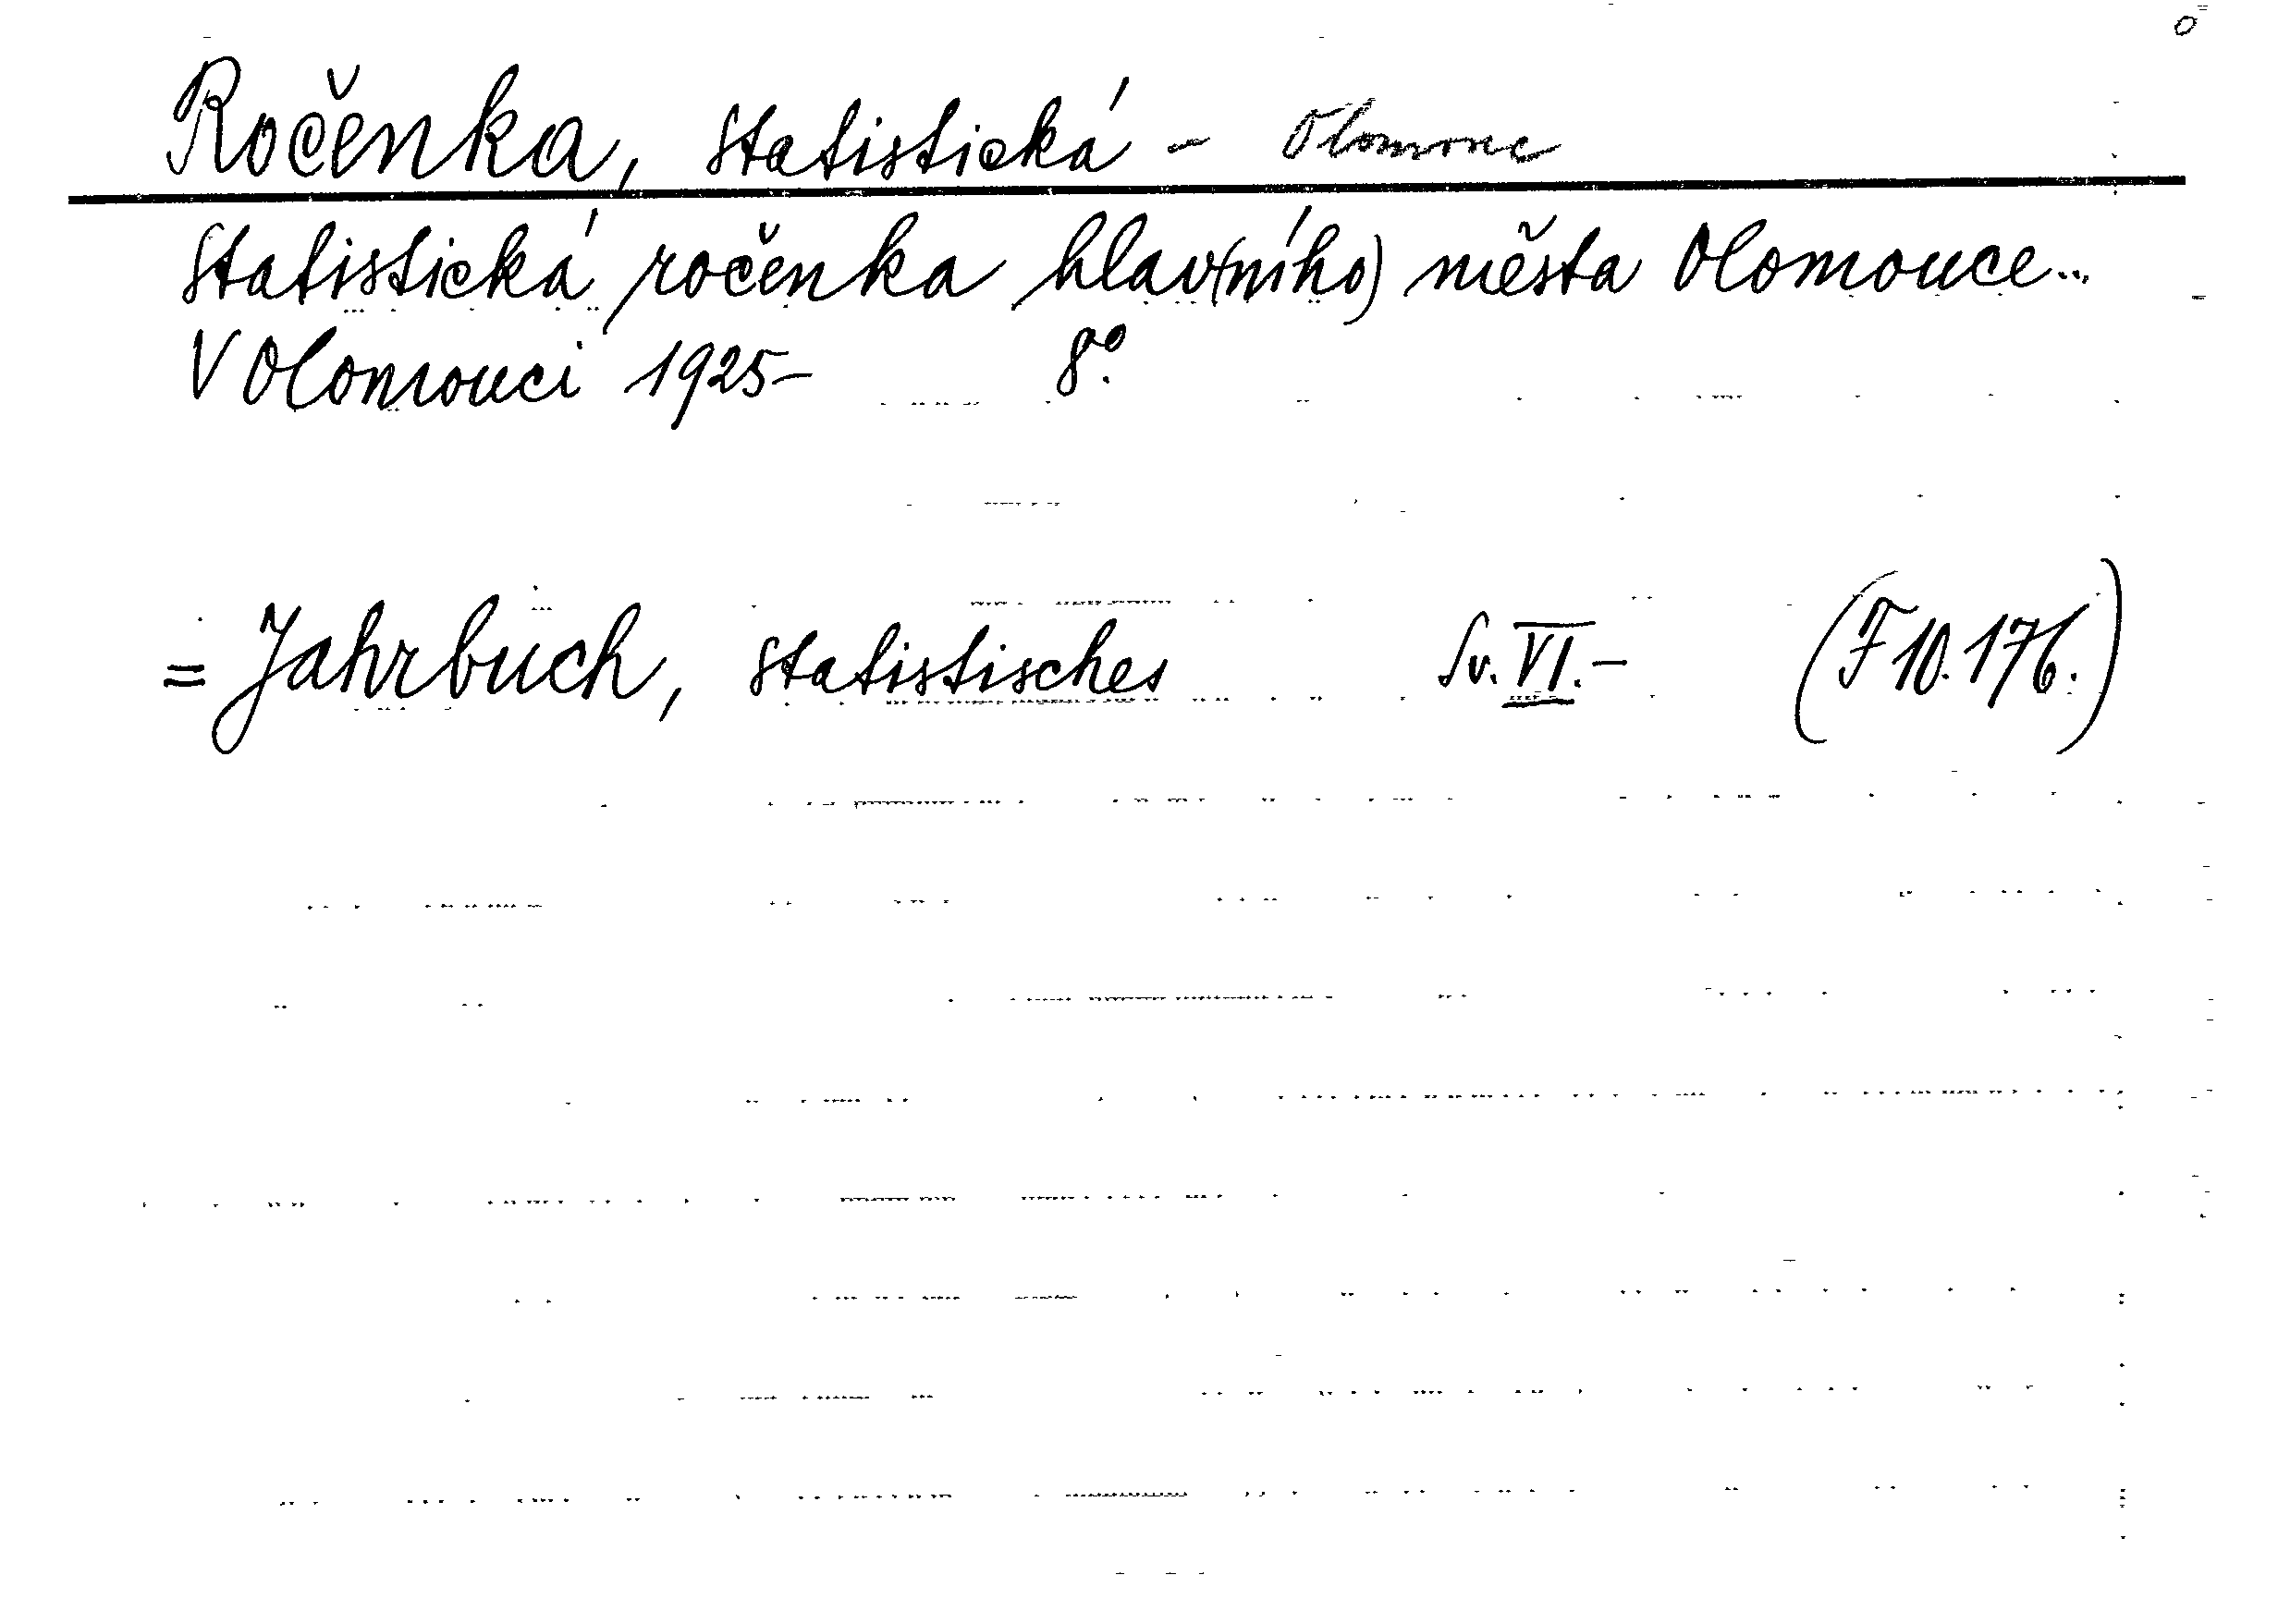 Ročenka, statistická - Olomouc
Statistická ročenka hlav(ního) města Olomouce...
V Olomouci 1925- 8°.
= Jahrbuch, statistisches Sv. VI.- (F 10.176.)